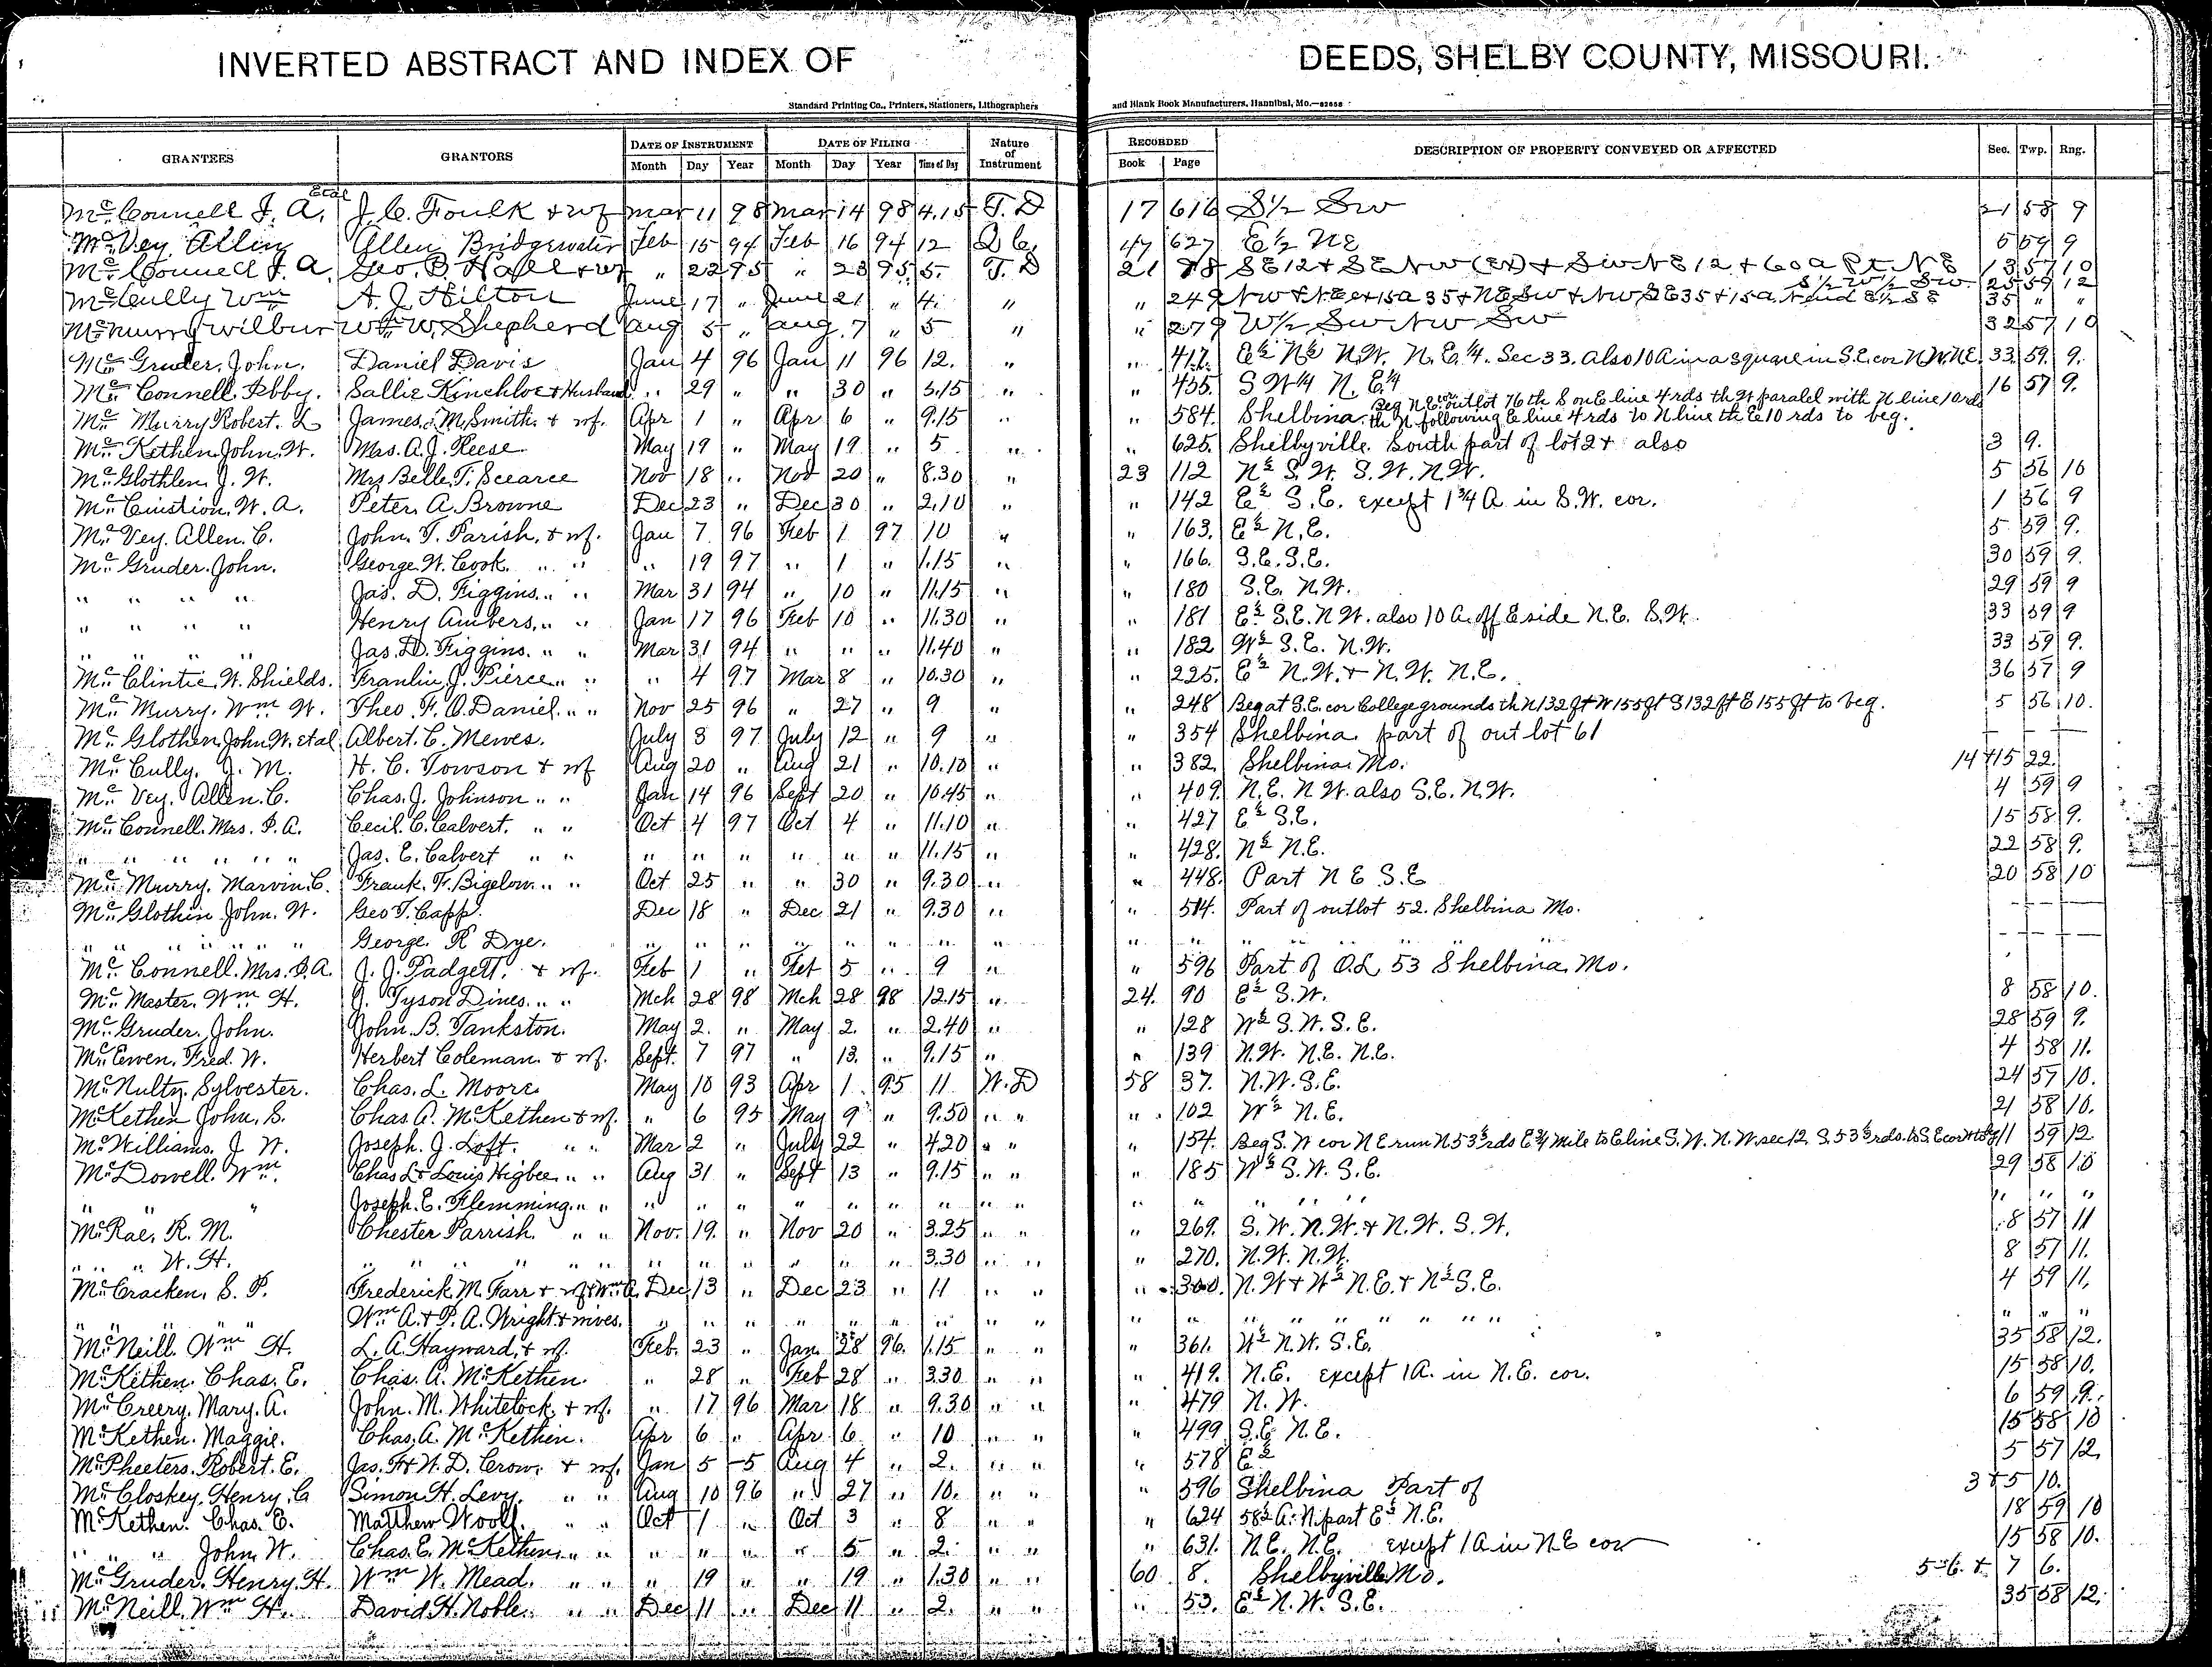 INVERTED ABSTRACT AND INDEX OF DEEDS, SHELBY COUNTY, MISSOURI.
Standard Printing Co., Printers, Stationers, Lithographers and Blank Book Manufacturers, Hannibal, Mo.—62658
GRANTEES GRANTORS DATE OF INSTRUMENT DATE OF FILING Nature of Instrument RECORDED DESCRIPTION OF PROPERTY CONVEYED OR AFFECTED Sec. Twp. Rng.
Month Day Year Month Day Year Time of Day Book Page
Etal
McConnell J. A. J. C. Foulk + wf Mar 11 98 Mar 14 98 4.15 T. D 17 616 S 1/2 SW 21 58 9
McVey Allen Allen Bridgewater Feb 15 94 Feb 16 94 12 Q C. 47 627 E 1/2 NE 5 59 9
McConnell J. A. Geo. B. Hall + wf " 22 95 " 23 95 5. T. D 21 78 SE 12 + SE NW (Ex) + SW NE 12 + 60 a Pt NE 13 57 10
S 1/2 W 1/2 SW 25 59 12
McCully Wm A. J. Hilton June 17 " June 21 " 4. " " 249 NW + NE ex 15a 35 + NE SW + NW SE 35 + 15a N end E 1/2 SE 35 " "
McMurry Wilbur Wm W. Shepherd Aug 5 " Aug. 7 " 5 " " 279 W 1/2 SW NW SW 32 57 10
Mc Gruder, John. Daniel Davis Jan 4 96 Jan 11 96 12. " " 417. E½ N½ N.W. N.E.¼. Sec 33. also 10 A in a square in S.E. cor N.W. N.E. 33. 59. 9.
Mc Connell, Febby. Sallie Kinchloe + Husband " 29 " " 30 " 3.15 " " 435. S W¼ N. E.¼ 16 57 9.
Beg N.E. cor outlot 76 th S on E line 4 rds th W paralel with N line 10 rds
Mc Murry Robert. L James. M. Smith. + wf. Apr 1 " Apr 6 " 9.15 " " 584. Shelbina. th N following E line 4 rds to N line th E 10 rds to beg.
Mc Kethen John. W. Mrs. A. J. Reese May 19 " May 19 " 5 " " 625. Shelbyville. South part of lot 2 + also 3 9.
Mc Glothlen, J. W. Mrs Belle. T. Scearce Nov 18 " Nov 20 " 8.30 " 23 112 N½ S.W. S.W. N.W. 5 56 10
Mc Cuistion, W. A. Peter. A. Browne Dec 23 " Dec 30 " 2.10 " " 142 E½ S.E. except 1¾ A in S.W. cor. 1 56 9
Mc Vey. Allen. C. John. T. Parish, + wf. Jan 7 96 Feb 1 97 10 " " 163. E½ N.E. 5 59 9.
Mc Gruder. John. George. W. Cook. " " " 19 97 " 1 " 1.15 " " 166. S.E. S.E. 30 59 9.
" " " " Jas. D. Figgins. " " Mar 31 94 " 10 " 11.15 " " 180 S.E. N.W. 29 59 9
" " " " Henry Ambers, " " Jan 17 96 Feb 10 " 11.30 " " 181 E½ S.E. N.W. also 10 A. off E side N.E. S.W. 33 59 9
" " " " Jas. D. Figgins. " " Mar 31 94 " " " 11.40 " " 182 W½ S.E. N.W. 33 59 9.
Mc Clintic, W. Shields. Franlin, J. Pierce " " " 4 97 Mar 8 " 10.30 " " 225. E½ N.W. + N.W. N.E. 36 57 9
Mc Murry, Wm W. Theo. F. O. Daniel. " " Nov 25 96 " 27 " 9 " " 248 Beg at S.E. cor College grounds th N 132 ft W 155 ft S 132 ft E 155 ft to beg. 5 56 10.
Mc Glothen, John W. et al Albert. C. Mewes. July 3 97 July 12 " 9 " " 354 Shelbina. part of out lot 61
Mc Cully, J. M. H. C. Towson + wf Aug 20 " Aug 21 " 10.10 " " 382. Shelbina Mo. 14 + 15 22.
Mc Vey. Allen. C. Chas. J. Johnson " " Jan 14 96 Sept 20 " 10.45 " " 409. N.E. N W. also S.E. N.W. 4 59 9
Mc Connell. Mrs. J. A. Cecil. C. Calvert. " " Oct 4 97 Oct 4 " 11.10 " " 427 E½ S.E. 15 58 9.
" " " " " " Jas. E. Calvert " " " " " " " " 11.15 " " 428. N½ N.E. 22 58 9.
Mc Murry. Marvin. C. Frank. F. Bigelow. " " Oct 25 " " 30 " 9.30 " " 448. Part N E S.E 20 58 10
Mc Glothin John. W. Geo T. Capp. Dec 18 " Dec 21 " 9.30 " " 514. Part of outlot 52. Shelbina Mo.
" " " " " " George. R Dye. " " " " " " " " " " " " " " "
Mc Connell. Mrs. J. A. J. J. Padgett. + wf. Feb 1 " Feb 5 " 9 " " 596 Part of O.L 53 Shelbina, Mo.
Mc Master, Wm H. J. Tyson Dines. " " Mch 28 98 Mch 28 98 12.15 " 24. 90 E½ S.W. 8 58 10.
Mc Gruder, John. John. B. Tankston. May 2. " May 2. " 2.40 " " 128 W½ S.W. S.E. 28 59 9.
Mc Ewen, Fred. W. Herbert Coleman. + wf. Sept. 7 97 " 13. " 9.15 " " 139 N.W. N.E. N.E. 4 58 11.
McNulty, Sylvester. Chas. L. Moore May 10 93 Apr 1. 95 11 W. D 58 37. N.W. S.E. 24 57 10.
McKethen John. S. Chas. A. McKethen + wf. " 6 95 May 9 " 9.50 " " " 102 W½ N.E. 21 58 10.
McWilliams, J W. Joseph. J. Loft. " " Mar 2 " July 22 " 4.20 " " " 154. Beg S. W cor N E run N 53⅓ rds E ¾ mile to E line S. W. N. W. sec 12, S. 53⅓ rds. to S. E cor W to beg 11 59 12
McDowell. Wm. Chas L + Louis Higbee. " " Aug 31 " Sept 13 " 9.15 " " " 185 W½ S.W. S.E. 29 58 10
" " " Joseph. E. Flemming. " " " " " " " " " " " " " " " " " " " "
McRae, R. M. Chester Parrish. " " Nov. 19. " Nov 20 " 3.25 " " " 269. S.W. N.W. + N.W. S.W. 8 57 11
" " " W. H. " " " " " " " " " " 3.30 " " " 270. N.W. N.W. 8 57 11.
McCracken, S. P. Frederick M. Farr + wf + Wm A. Dec 13 " Dec 23 " 11 " " " 300. N.W + W½ N.E. + N½ S.E. 4 59 11.
" " " Wm A. + P. A. Wright + wives. " " " " " " " " " " " " " " " " " " " "
McNeill. Wm H. L. A. Hayward, + wf. Feb. 23 " Jan. 28 96. 1.15 " " " 361. W½ N.W. S.E. 35 58 12.
McKethen. Chas. E. Chas. A. McKethen. " 28 " Feb 28 " 3.30 " " " 419. N.E. except 1 A. in N.E. cor. 15 58 10.
McCreery. Mary. A. John. M. Whitelock, + wf. " 17 96 Mar 18 " 9.30 " " " 479 N. W. 6 59 9.
McKethen. Maggie. Chas. A. McKethen. Apr 6 " Apr 6 " 10 " " " 499 S.E. N.E. 15 58 10
McPheeters. Robert. E. Jas. F + W. D. Crow. + wf. Jan 5 -5 Aug 4 " 2. " " " 578 E½ 5 57 12.
McCloskey. Henry. C Simon H. Levy. " " Aug 10 96 " 27 " 10. " " " 596 Shelbina Part of 3 + 5 10.
McKethen. Chas. E. Matthew Woolf. " " Oct 1 " Oct 3 " 8 " " " 624 58½ A. N. part E½ N.E. 18 59 10
" " John, W. Chas. E. McKethen " " " " " " 5 " 2. " " " 631. N.E. N.E. except 1 A in N E cor 15 58 10.
McGruder. Henry. H. Wm W. Mead. " " " 19 " " 19 " 1.30 " " 60 8. Shelbyville Mo. 5-6. + 7 6.
McNeill. Wm H. David H. Noble. " " Dec 11 " Dec 11 " 2. " " " 53. E½ N.W. S.E. 35 58 12.